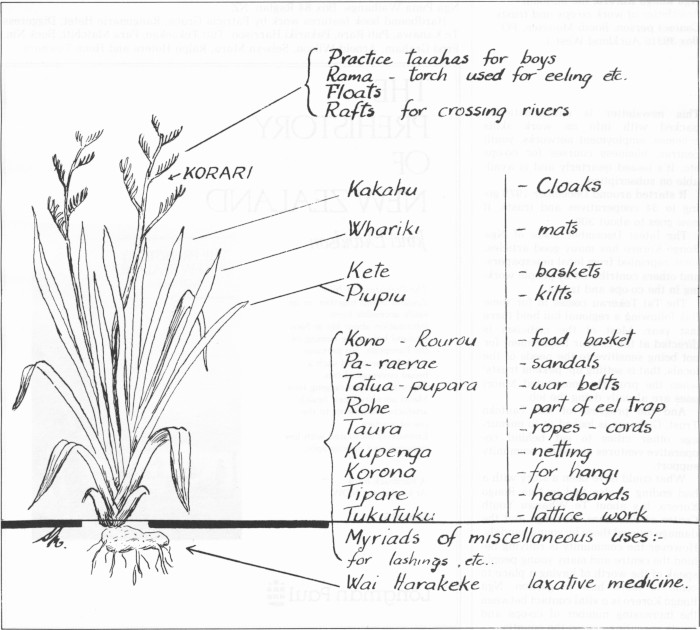 Practice taiahas for boys
Rama - torch used for eeling etc.
Floats
Rafts for crossing rivers
KORARI
Kakahu - Cloaks
Whariki - mats
Kete - baskets
Piupiu - kilts
Kono - Rourou - food basket
Pa-raerae - sandals
Tatua-pupara - war belts
Rohe - part of eel trap
Taura - ropes - cords
Kupenga - netting
Korona - for hangi
Tipare - headbands
Tukutuku - lattice work
Myriads of miscellaneous uses:-
for lashings, etc..
Wai Harakeke laxative medicine.